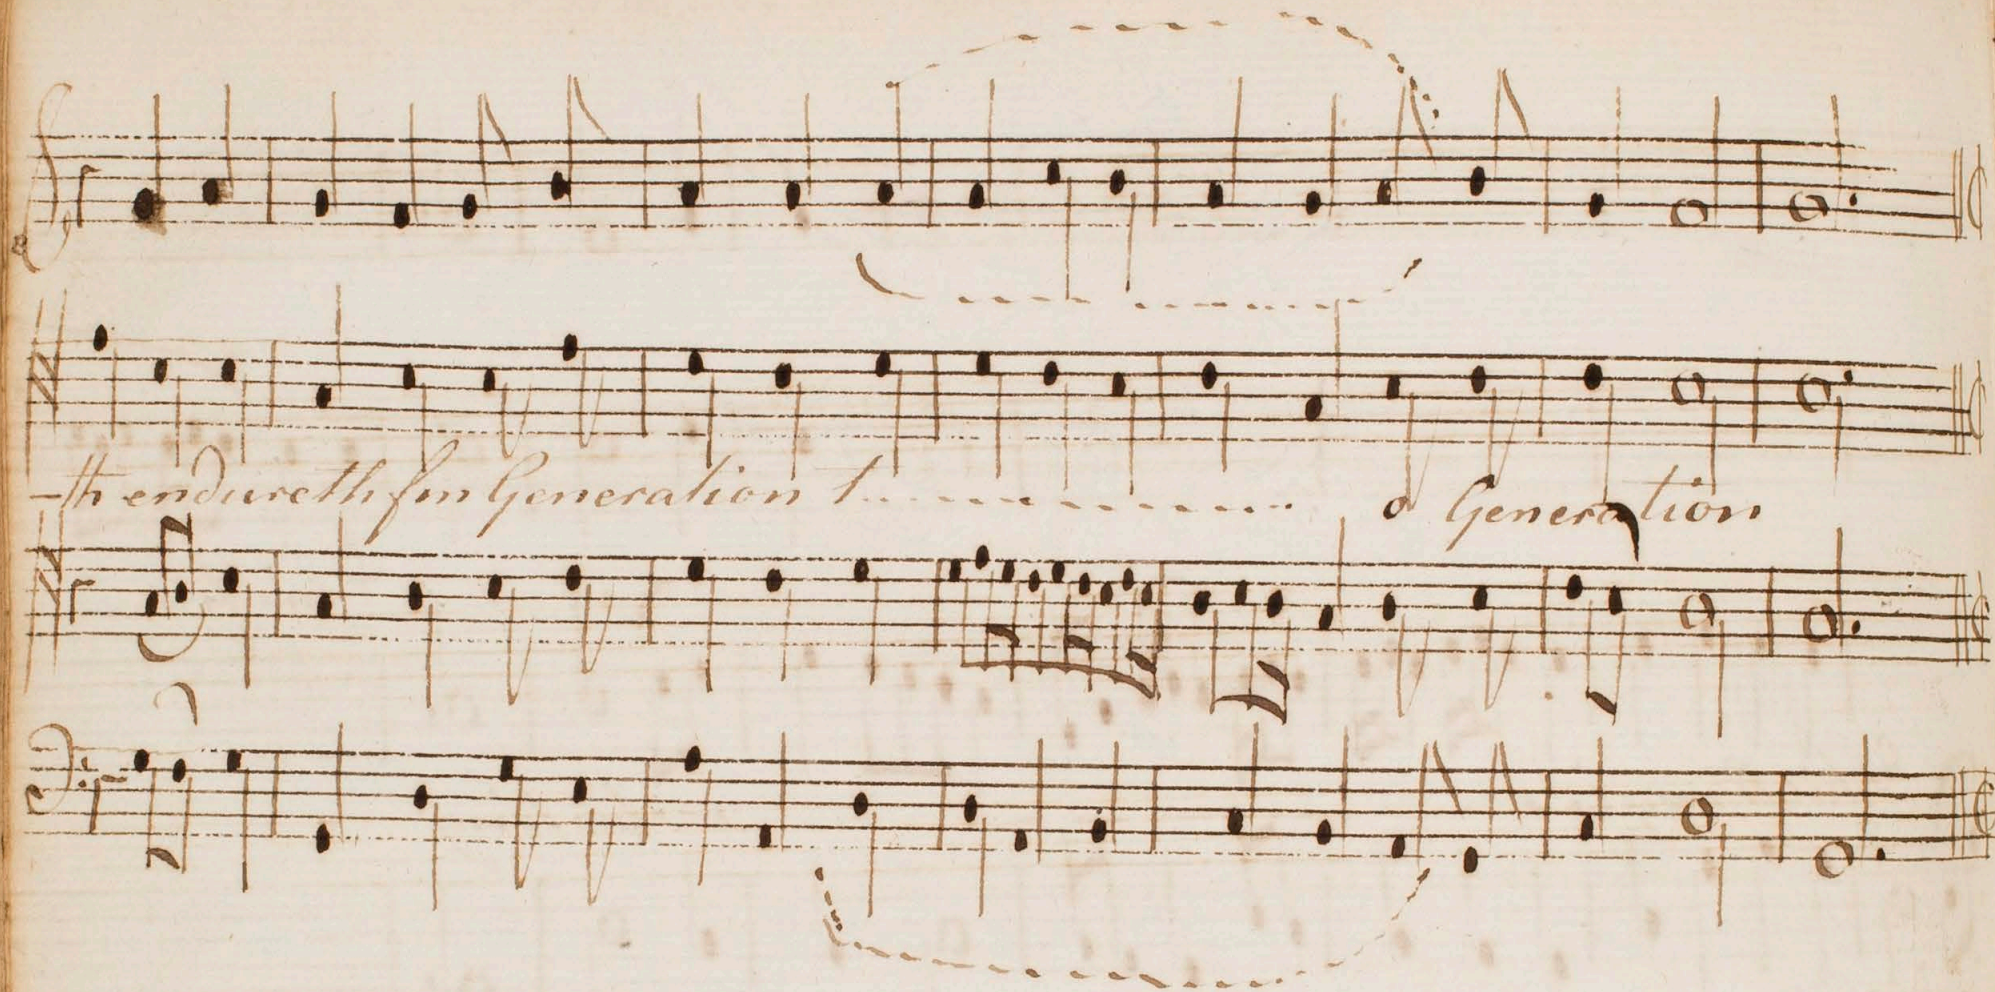 -th endureth fm Generation t------------o Generation